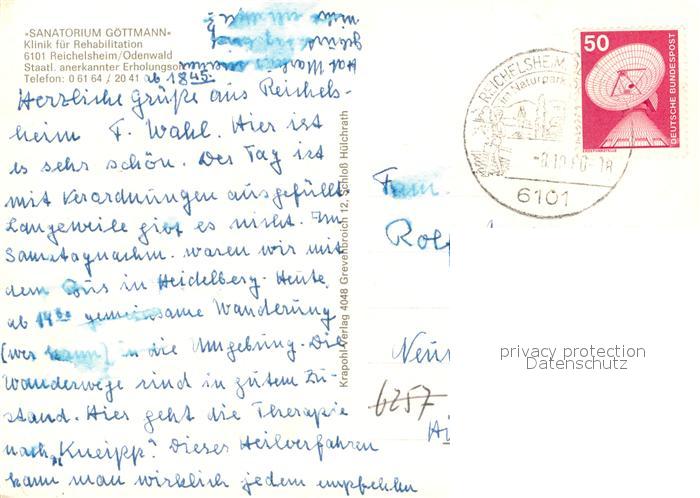 »SANATORIUM GÖTTMANN«
Klinik für Rehabilitation
6101 Reichelsheim/Odenwald
Staatl. anerkannter Erholungsort
Telefon: 0 61 64 / 20 41 ab 1845.
Herzliche Grüße aus Reichels-
heim F. Wahl. Hier ist
es sehr schön. Der Tag ist
mit Verordnungen ausgefüllt.
Langeweile gibt es nicht. Am
Samstagnachm. waren wir mit
dem Bus in Heidelberg. Heute
ab 14³⁰ gemeinsame Wanderung
(wer kann) in die Umgebung. Die
Wanderwege sind in gutem Zu-
stand. Hier geht die Therapie
nach „Kneipp". Dieses Heilverfahren
kann man wirklich jedem empfehlen
Krapohl-Verlag 4048 Grevenbroich 12, Schloß Hülchrath
50
DEUTSCHE BUNDESPOST
REICHELSHEIM
im Naturpark
6101
Fam.
Rolf
6257
privacy protection
Datenschutz